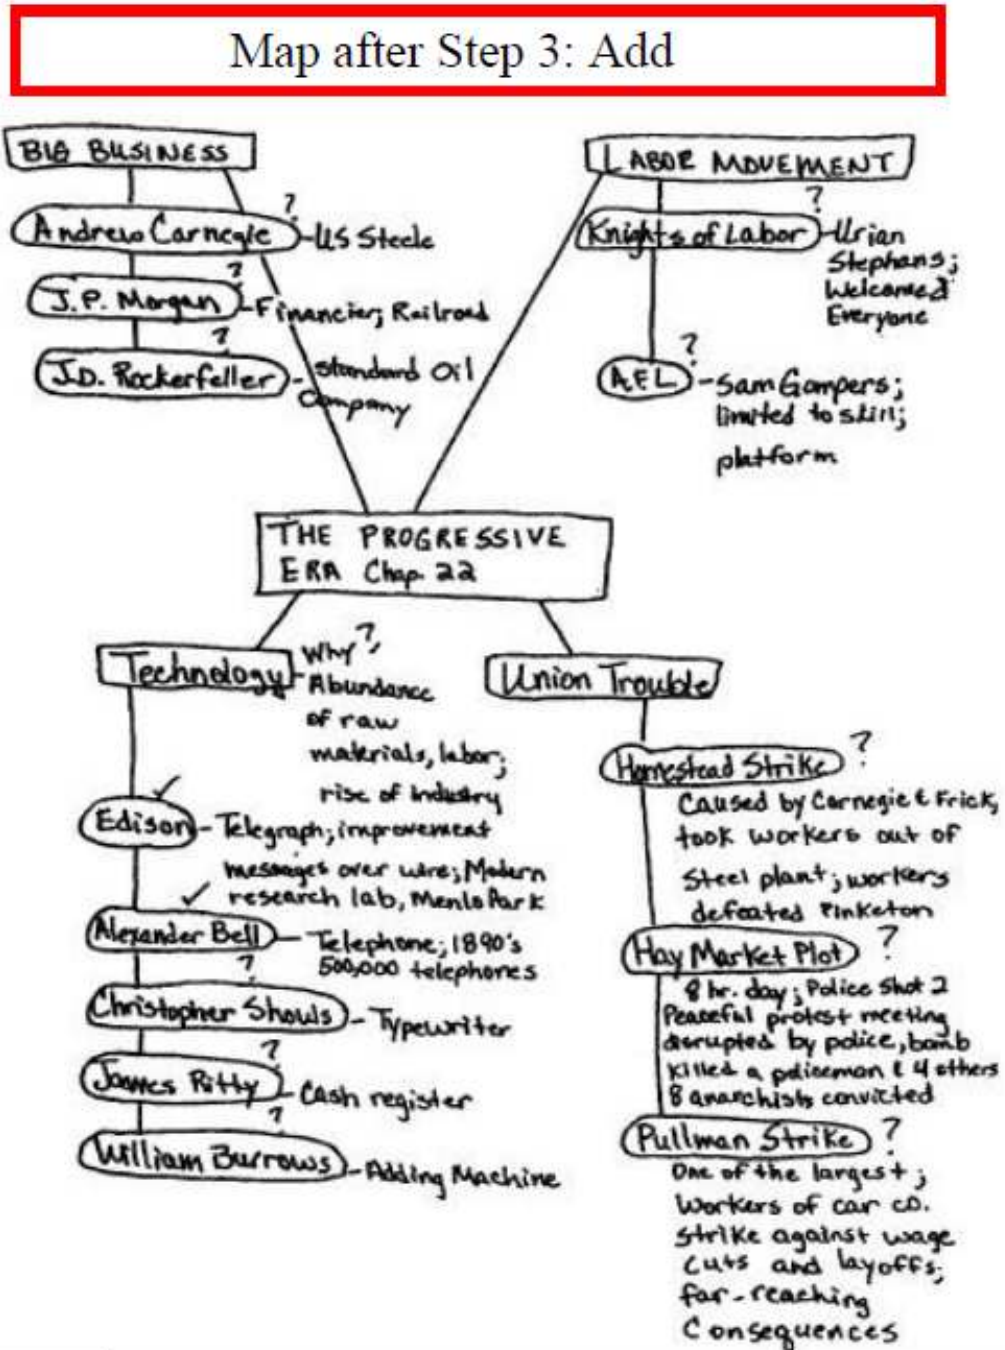 Map after Step 3: Add
BIG BUSINESS
?
Andrew Carnegie - US Steele
?
J.P. Morgan - Financier; Railroad
?
J.D. Rockerfeller - Standard Oil
Company
LABOR MOVEMENT
?
Knights of Labor - Urian
Stephans;
Welcomed
Everyone
?
A.F.L - Sam Gompers;
limited to skill;
platform
THE PROGRESSIVE
ERA Chap. 22
Technology - Why?
Abundance
of raw
materials, labor;
rise of industry
✓
Edison - Telegraph; improvement
messages over wire; Modern
research lab, Menlo Park
✓
Alexander Bell - Telephone; 1890's
500,000 telephones
?
Christopher Shouls - Typewriter
?
James Ritty - Cash register
?
William Burrows - Adding Machine
Union Trouble
Homestead Strike ?
Caused by Carnegie & Frick,
took workers out of
Steel plant; workers
defeated Pinketon
Hay Market Plot ?
8 hr. day; Police shot 2
Peaceful protest meeting
disrupted by police, bomb
killed a policeman & 4 others
8 anarchists convicted
Pullman Strike ?
One of the largest;
Workers of car co.
strike against wage
cuts and layoffs;
far-reaching
Consequences